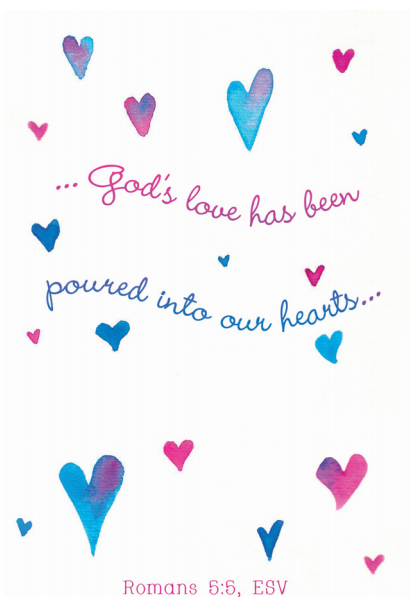 ... God's love has been
poured into our hearts...
Romans 5:5, ESV